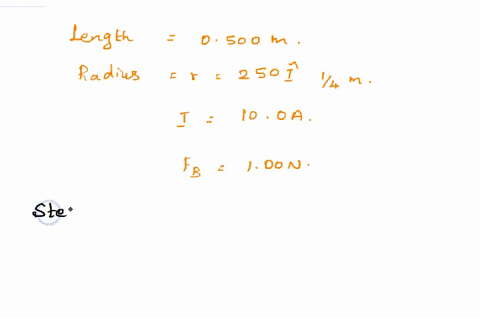 Length = 0.500 m.
Radius = r = 250 Î 1/4 m.
I = 10.0A.
F_B = 1.00N.
Ste